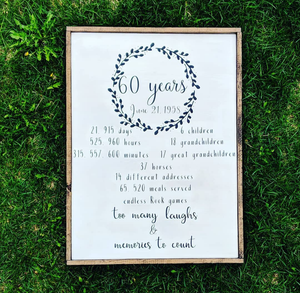 60 years
June 21, 1958
21, 915 days 6 children
525, 960 hours 18 grandchildren
315, 557, 600 minutes 17 great grandchildren
37 horses
14 different addresses
65, 520 meals served
endless Rook games
too many laughs
&
memories to count